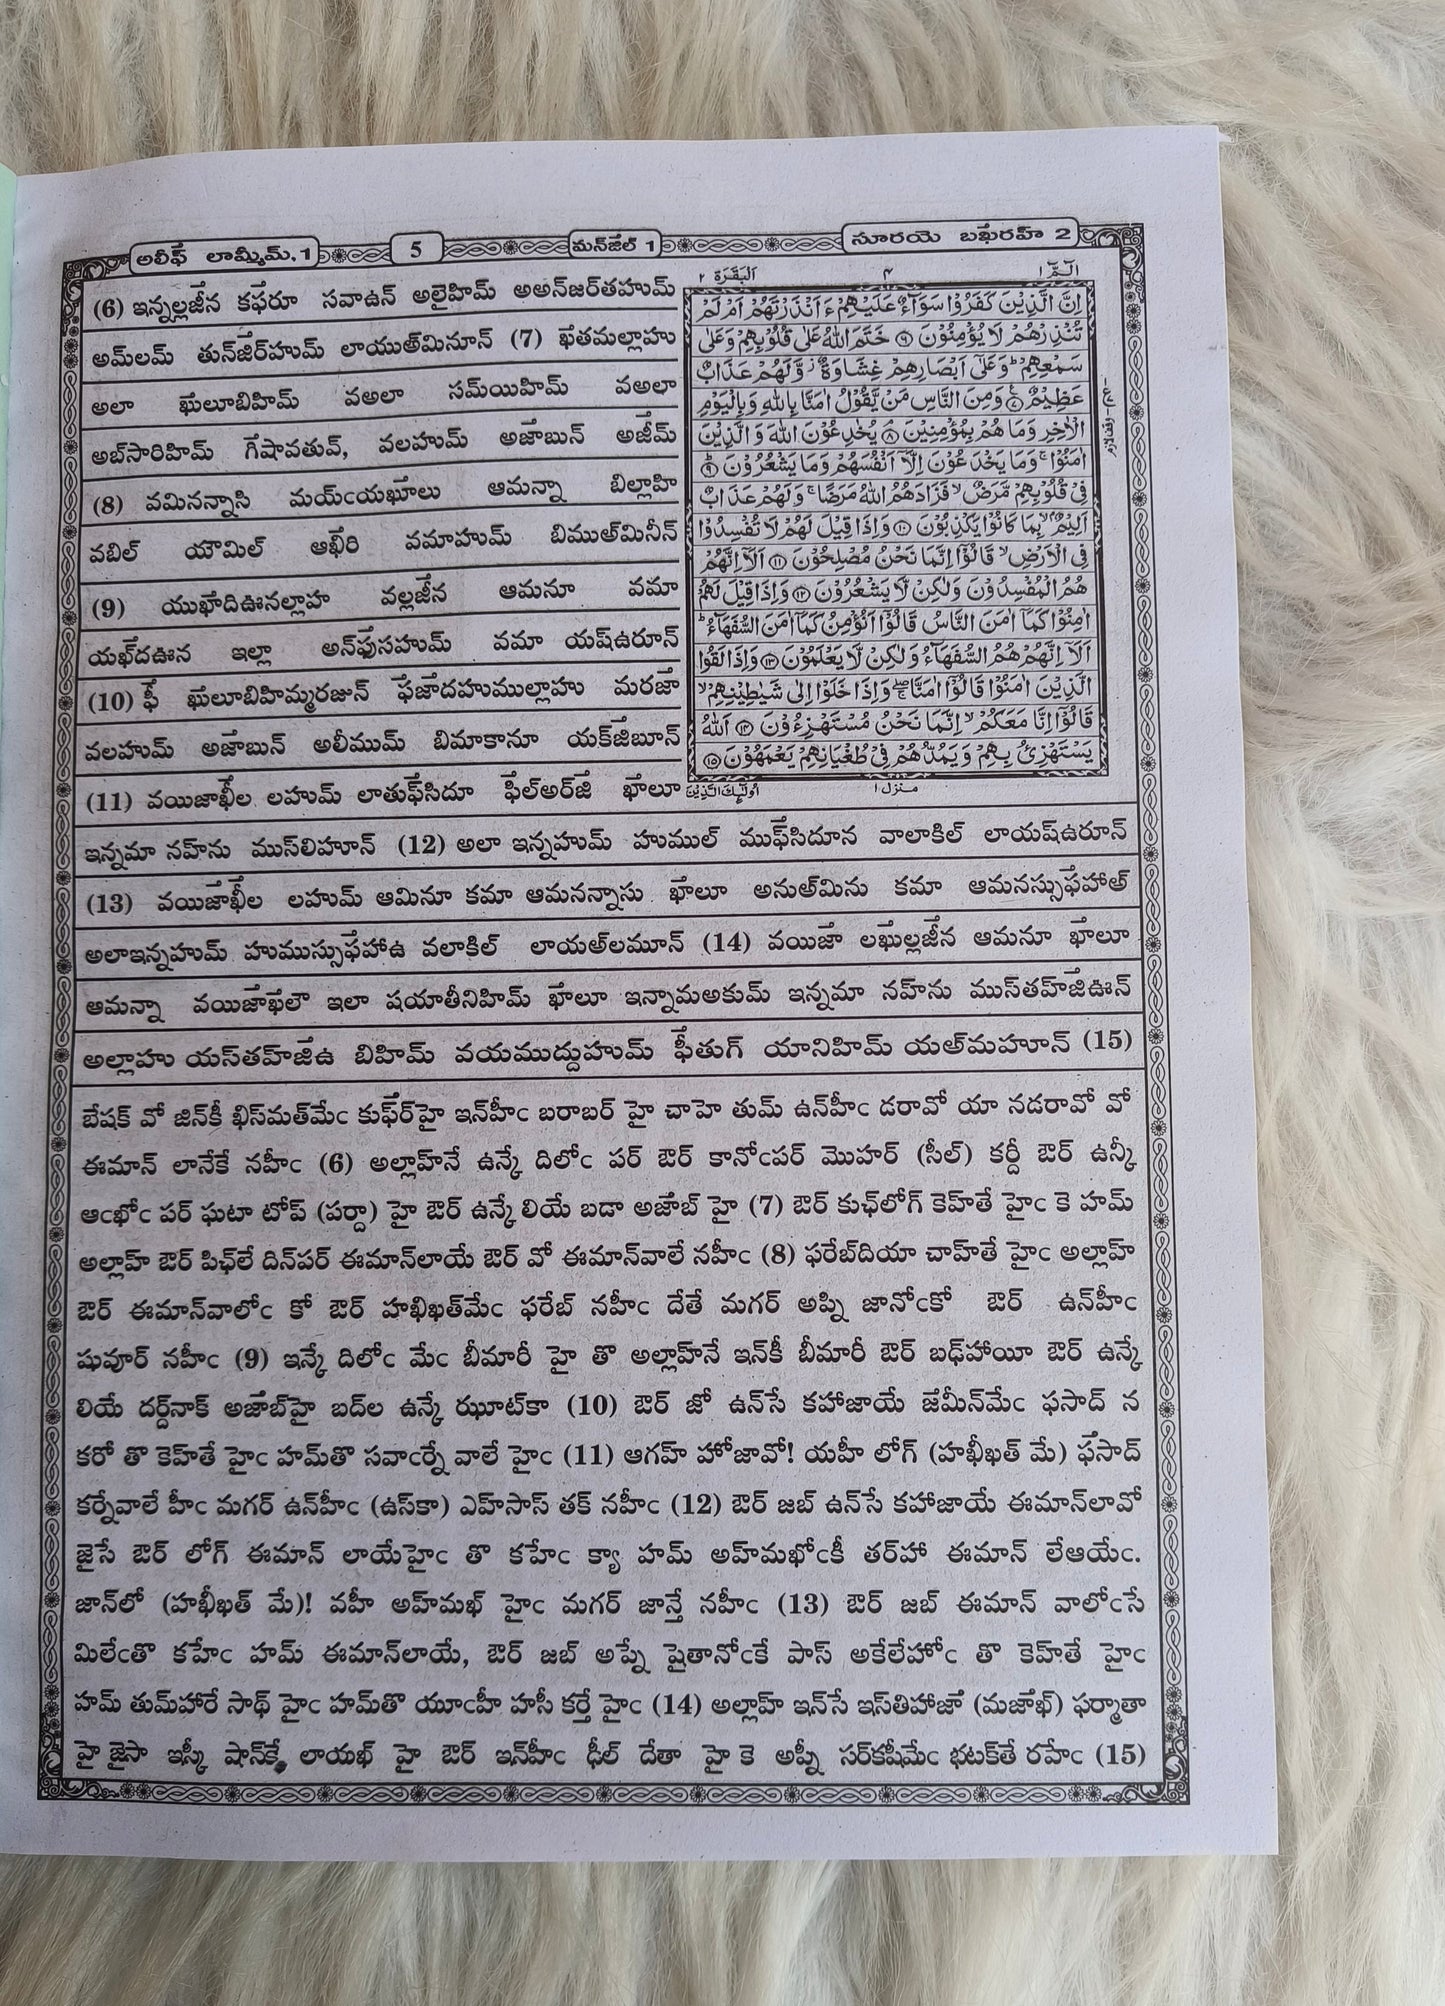 అలీఫ్ లామ్మీమ్.1
5
మన్‌జిల్ 1
సూరయె బఖరహ్ 2
(6) ఇన్నల్లజీన కఫరూ సవాఉన్ అలైహిమ్ అఅన్‌జర్‌తహుమ్
అమ్‌లమ్ తున్‌జిర్‌హుమ్ లాయుత్‌మినూన్ (7) ఖతమల్లాహు
అలా ఖులూబిహిమ్ వఅలా సమ్‌యిహిమ్ వఅలా
అబ్‌సారిహిమ్ గేషావతువ్, వలహుమ్ అజాబున్ అజీమ్
(8) వమినన్నాసి మయ్ఁయఖూలు ఆమన్నా బిల్లాహి
వబిల్ యౌమిల్ ఆఖిరి వమాహుమ్ బిముఅ్‌మినీన్
(9) యుఖాదిఊనల్లాహ వల్లజీన ఆమనూ వమా
యఖ్‌దఊన ఇల్లా అన్‌ఫుసహుమ్ వమా యష్‌ఉరూన్
(10) ఫీ ఖులూబిహిమ్మరజున్ ఫజాదహుముల్లాహు మరజా
వలహుమ్ అజాబున్ అలీముమ్ బిమాకానూ యక్‌జిబూన్
(11) వయిజాఖీల లహుమ్ లాతుఫ్‌సిదూ ఫిల్‌అర్‌జి ఖాలూ
ఇన్నమా నహ్‌ను ముస్‌లిహూన్ (12) అలా ఇన్నహుమ్ హుముల్ ముఫ్‌సిదూన వాలాకిల్ లాయష్‌ఉరూన్
(13) వయిజాఖీల లహుమ్ ఆమినూ కమా ఆమనన్నాసు ఖాలూ అనుఅ్‌మిను కమా ఆమనస్సుఫహాఅ్
అలాఇన్నహుమ్ హుముస్సుఫహాఉ వలాకిల్ లాయఅ్‌లమూన్ (14) వయిజా లఖుల్లజీన ఆమనూ ఖాలూ
ఆమన్నా వయిజాఖలౌ ఇలా షయాతీనిహిమ్ ఖాలూ ఇన్నామఅకుమ్ ఇన్నమా నహ్‌ను ముస్‌తహ్‌జిఊన్
అల్లాహు యస్‌తహ్‌జిఉ బిహిమ్ వయముద్దుహుమ్ ఫీతుగ్ యానిహిమ్ యఅ్‌మహూన్ (15)
البقرة ٢
٤
الٓـمّٓ ١
اِنَّ الَّذِيْنَ كَفَرُوْا سَوَآءٌ عَلَيْهِمْ ءَاَنْذَرْتَهُمْ اَمْ لَمْ
تُنْذِرْهُمْ لَا يُؤْمِنُوْنَ ۝٦ خَتَمَ اللّٰهُ عَلٰى قُلُوْبِهِمْ وَعَلٰى
سَمْعِهِمْ ؕ وَعَلٰٓى اَبْصَارِهِمْ غِشَاوَةٌ ؗ وَّلَهُمْ عَذَابٌ
عَظِيْمٌ ۝٧ وَمِنَ النَّاسِ مَنْ يَّقُوْلُ اٰمَنَّا بِاللّٰهِ وَبِالْيَوْمِ
الْاٰخِرِ وَمَا هُمْ بِمُؤْمِنِيْنَ ۝٨ يُخٰدِعُوْنَ اللّٰهَ وَالَّذِيْنَ
اٰمَنُوْا ۚ وَمَا يَخْدَعُوْنَ اِلَّآ اَنْفُسَهُمْ وَمَا يَشْعُرُوْنَ ۝٩
فِىْ قُلُوْبِهِمْ مَّرَضٌ ۙ فَزَادَهُمُ اللّٰهُ مَرَضًا ۚ وَلَهُمْ عَذَابٌ
اَلِيْمٌ ۢ ۙ بِمَا كَانُوْا يَكْذِبُوْنَ ۝١٠ وَاِذَا قِيْلَ لَهُمْ لَا تُفْسِدُوْا
فِى الْاَرْضِ ۙ قَالُوْٓا اِنَّمَا نَحْنُ مُصْلِحُوْنَ ۝١١ اَلَآ اِنَّهُمْ
هُمُ الْمُفْسِدُوْنَ وَلٰكِنْ لَّا يَشْعُرُوْنَ ۝١٢ وَاِذَا قِيْلَ لَهُمْ
اٰمِنُوْا كَمَآ اٰمَنَ النَّاسُ قَالُوْٓا اَنُؤْمِنُ كَمَآ اٰمَنَ السُّفَهَآءُ ؕ
اَلَآ اِنَّهُمْ هُمُ السُّفَهَآءُ وَلٰكِنْ لَّا يَعْلَمُوْنَ ۝١٣ وَاِذَا لَقُوا
الَّذِيْنَ اٰمَنُوْا قَالُوْٓا اٰمَنَّا ۖۚ وَاِذَا خَلَوْا اِلٰى شَيٰطِيْنِهِمْ ۙ
قَالُوْٓا اِنَّا مَعَكُمْ ۙ اِنَّمَا نَحْنُ مُسْتَهْزِءُوْنَ ۝١٤ اَللّٰهُ
يَسْتَهْزِئُ بِهِمْ وَيَمُدُّهُمْ فِىْ طُغْيَانِهِمْ يَعْمَهُوْنَ ۝١٥
منزل ١
اُولٰٓئِكَ الَّذِيْنَ
బేషక్ వో జిన్‌కీ ఖిస్‌మత్‌మేఁ కుఫ్ర్‌హై ఇన్‌హీఁ బరాబర్ హై చాహె తుమ్ ఉన్‌హీఁ డరావో యా నడరావో వో
ఈమాన్ లానేకే నహీఁ (6) అల్లాహ్‌నే ఉన్కే దిలోఁ పర్ ఔర్ కానోఁపర్ మొహర్ (సీల్) కర్దీ ఔర్ ఉన్కీ
ఆఁఖోఁ పర్ ఘటా టోప్ (పర్దా) హై ఔర్ ఉన్కేలియే బడా అజాబ్ హై (7) ఔర్ కుఛ్‌లోగ్ కెహ్‌తే హైఁ కె హమ్
అల్లాహ్ ఔర్ పిఛ్‌లే దిన్‌పర్ ఈమాన్‌లాయే ఔర్ వో ఈమాన్‌వాలే నహీఁ (8) ఫరేబ్‌దియా చాహ్‌తే హైఁ అల్లాహ్
ఔర్ ఈమాన్‌వాలోఁ కో ఔర్ హఖిఖత్‌మేఁ ఫరేబ్ నహీఁ దేతే మగర్ అప్ని జానోఁకో ఔర్ ఉన్‌హీఁ
షువూర్ నహీఁ (9) ఇన్కే దిలోఁ మేఁ బీమారీ హై తొ అల్లాహ్‌నే ఇన్‌కీ బీమారీ ఔర్ బఢ్‌హాయీ ఔర్ ఉన్కే
లియే దర్ద్‌నాక్ అజాబ్‌హై బద్‌ల ఉన్కే ఝూట్‌కా (10) ఔర్ జో ఉన్‌సే కహాజాయే జేమీన్‌మేఁ ఫసాద్ న
కరో తొ కెహ్‌తే హైఁ హమ్‌తొ సవాఁర్నే వాలే హైఁ (11) ఆగహ్ హోజావో! యహీ లోగ్ (హఖీఖత్ మే) ఫసాద్
కర్నేవాలే హీఁ మగర్ ఉన్‌హీఁ (ఉస్‌కా) ఎహ్‌సాస్ తక్ నహీఁ (12) ఔర్ జబ్ ఉన్‌సే కహాజాయే ఈమాన్‌లావో
జైసే ఔర్ లోగ్ ఈమాన్ లాయేహైఁ తొ కహేఁ క్యా హమ్ అహ్‌మఖోఁకీ తర్‌హా ఈమాన్ లేఆయేఁ.
జాన్‌లో (హఖీఖత్ మే)! వహీ అహ్‌మఖ్ హైఁ మగర్ జాన్తే నహీఁ (13) ఔర్ జబ్ ఈమాన్ వాలోఁసే
మిలేఁతొ కహేఁ హమ్ ఈమాన్‌లాయే, ఔర్ జబ్ అప్నే షైతానోఁకే పాస్ అకేలేహోఁ తొ కెహ్‌తే హైఁ
హమ్ తుమ్‌హారే సాథ్ హైఁ హమ్‌తొ యూఁహీ హసీ కర్తే హైఁ (14) అల్లాహ్ ఇన్‌సే ఇస్‌తిహాజా (మజాఖ్) ఫర్మాతా
హై జైసా ఇస్కీ షాన్‌కే లాయఖ్ హై ఔర్ ఇన్‌హీఁ ఢీల్ దేతా హై కె అప్నీ సర్‌కషీమేఁ భటక్‌తే రహేఁ (15)